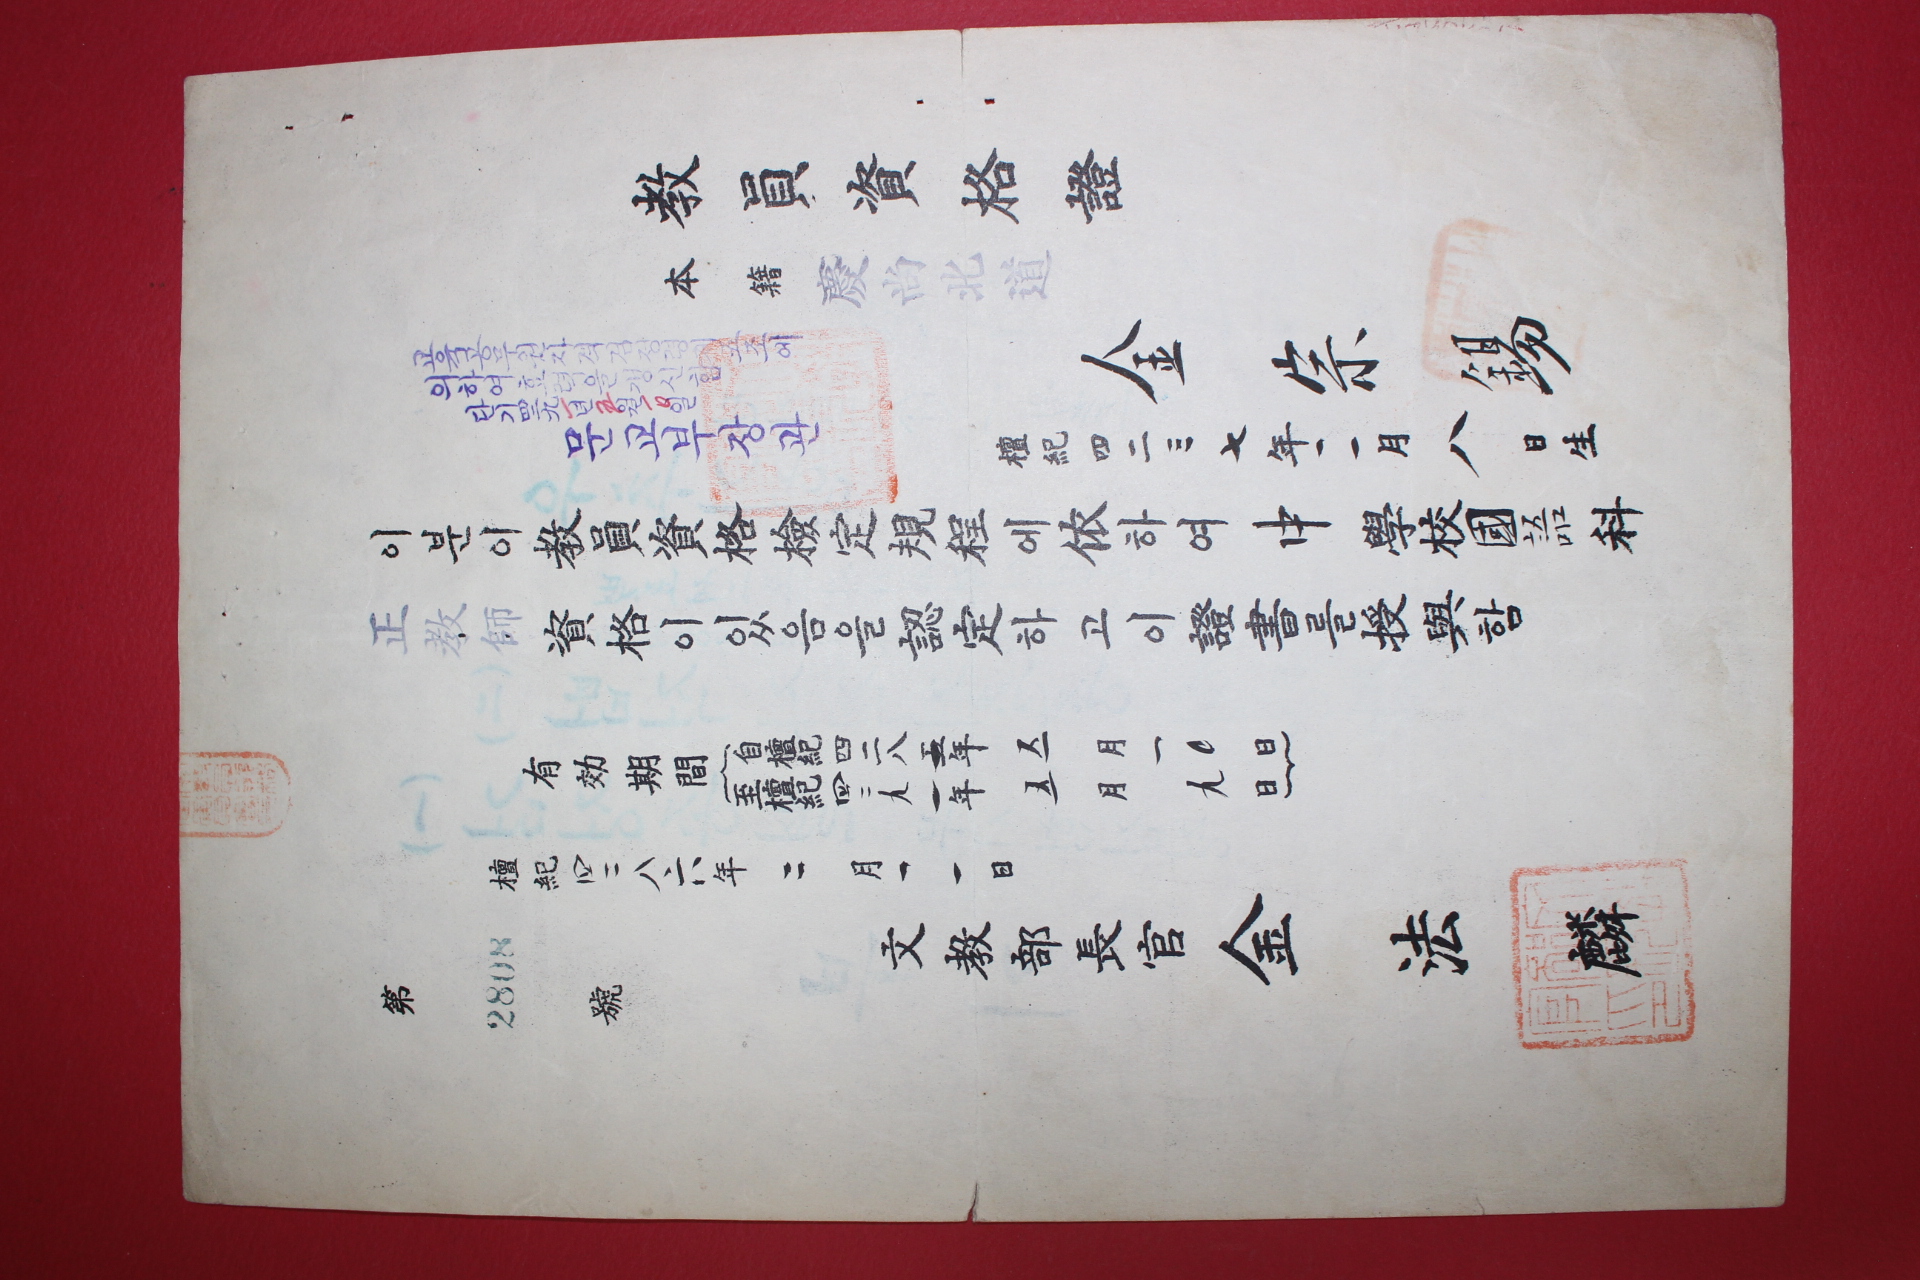 教員資格證
本籍 慶尙北道
교육공무원자격검정령제五조에
의하여효력을갱신함
단기四二九一년五월一〇일
문교부장관
金宗錫
檀紀四二三七年二一月八日生
이분이敎員資格檢定規程에依하여中學校國語科
正教師資格이있음을認定하고이證書를授與함
有効期間
自檀紀四二八五年五月一〇日
至檀紀四二九一年五月九日
檀紀四二八六年二月一一日
文敎部長官 金法麟
第 2808 號